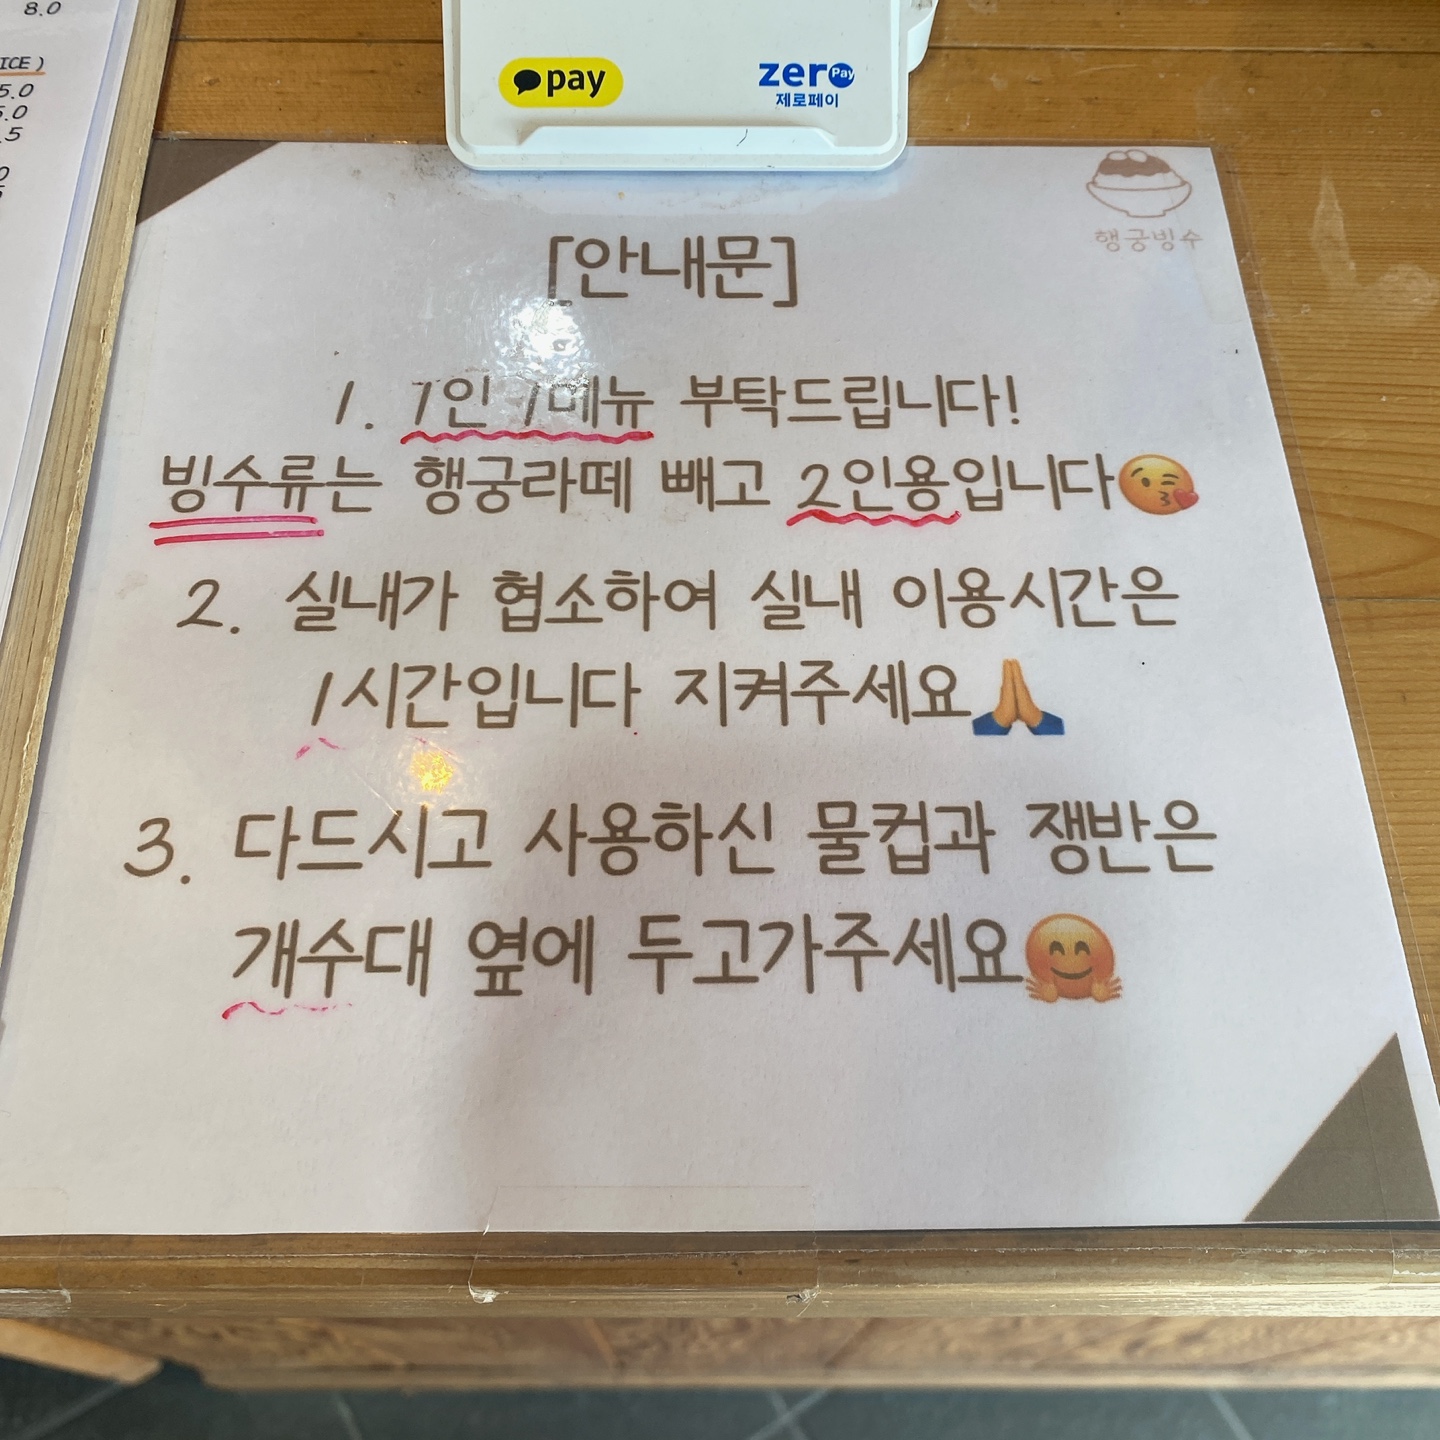 8.0
ICE )
5.0
5.0
.5
0
5
pay
zero Pay
제로페이
행궁빙수
[안내문]
1. 1인 1메뉴 부탁드립니다!
빙수류는 행궁라떼 빼고 2인용입니다😘
2. 실내가 협소하여 실내 이용시간은
1시간입니다 지켜주세요🙏
3. 다드시고 사용하신 물컵과 쟁반은
개수대 옆에 두고가주세요🤗